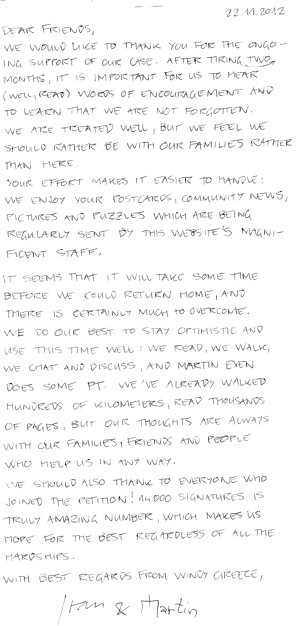 22.11.2012
DEAR FRIENDS,
WE WOULD LIKE TO THANK YOU FOR THE ONGO-
ING SUPPORT OF OUR CASE. AFTER TIRING TWO
MONTHS, IT IS IMPORTANT FOR US TO HEAR
(WELL, READ) WORDS OF ENCOURAGEMENT AND
TO LEARN THAT WE ARE NOT FORGOTTEN.
WE ARE TREATED WELL, BUT WE FEEL WE
SHOULD RATHER BE WITH OUR FAMILIES RATHER
THAN HERE.
YOUR EFFORT MAKES IT EASIER TO HANDLE:
WE ENJOY YOUR POSTCARDS, COMMUNITY NEWS,
PICTURES AND PUZZLES WHICH ARE BEING
REGULARLY SENT BY THIS WEBSITE'S MAGNI-
FICENT STAFF.
IT SEEMS THAT IT WILL TAKE SOME TIME
BEFORE WE COULD RETURN HOME, AND
THERE IS CERTAINLY MUCH TO OVERCOME.
WE DO OUR BEST TO STAY OPTIMISTIC AND
USE THIS TIME WELL: WE READ, WE WALK,
WE CHAT AND DISCUSS, AND MARTIN EVEN
DOES SOME PT. WE'VE ALREADY WALKED
HUNDREDS OF KILOMETERS, READ THOUSANDS
OF PAGES, BUT OUR THOUGHTS ARE ALWAYS
WITH OUR FAMILIES, FRIENDS AND PEOPLE
WHO HELP US IN ANY WAY.
WE SHOULD ALSO THANK TO EVERYONE WHO
JOINED THE PETITION! 14000 SIGNATURES IS
TRULY AMAZING NUMBER, WHICH MAKES US
HOPE FOR THE BEST REGARDLESS OF ALL THE
HARDSHIPS.
WITH BEST REGARDS FROM WINDY GREECE,
Ivan & Martin